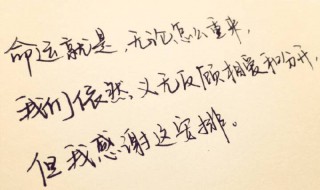 命运就是，无论怎么重来，
我们依然义无反顾相爱和分开，
但我感谢这安排。